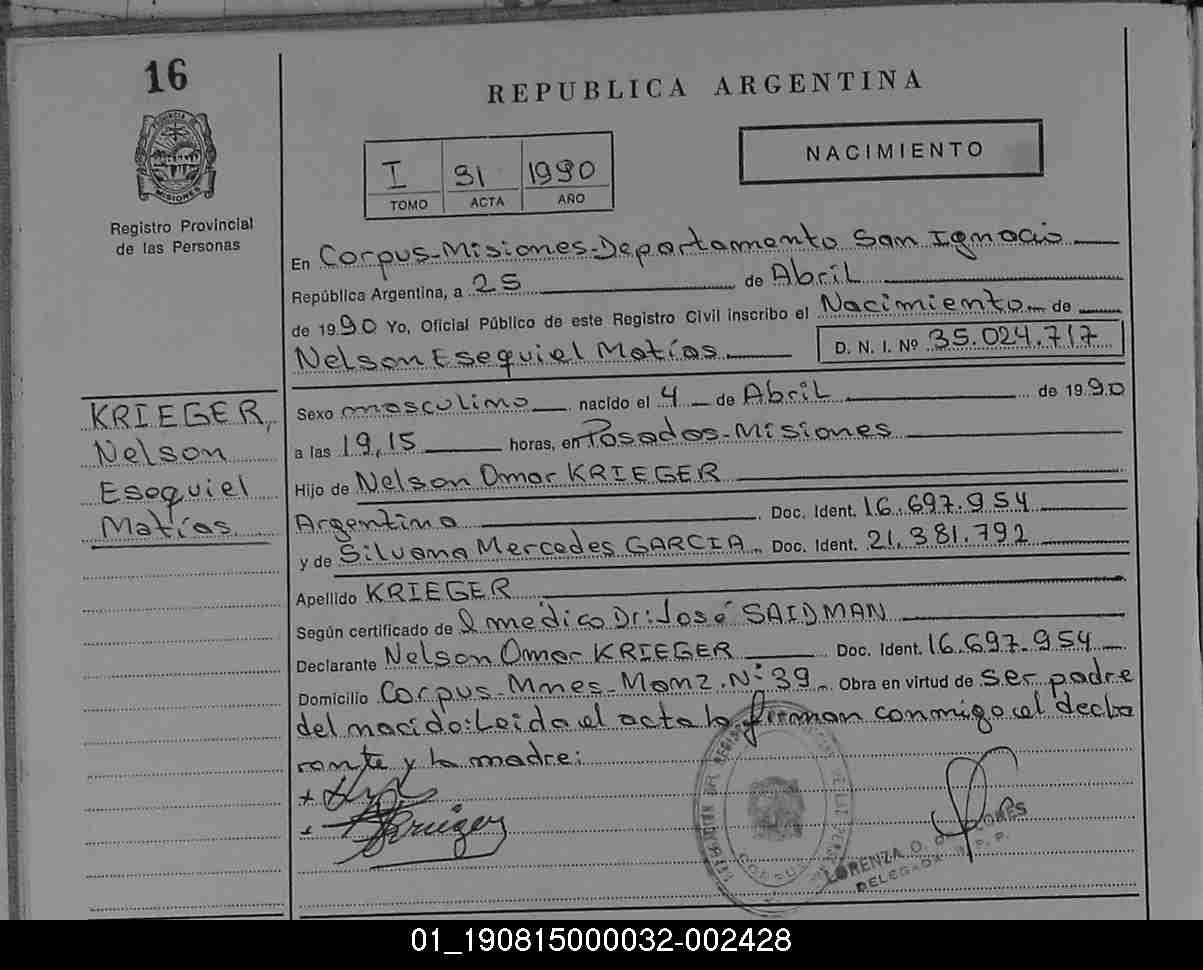 16
PROVINCIA DE
MISIONES
Registro Provincial
de las Personas
REPUBLICA ARGENTINA
I 31 1990
TOMO ACTA AÑO
NACIMIENTO
En Corpus-Misiones-Departamento San Ignacio
República Argentina, a 25 de Abril
de 1990 Yo, Oficial Público de este Registro Civil inscribo el Nacimiento de
Nelson Esequiel Matías D. N. I. Nº 35.024.717
KRIEGER,
Nelson
Esequiel
Matías
Sexo masculino nacido el 4 de Abril de 1990
a las 19,15 horas, en Posadas-Misiones
Hijo de Nelson Omar KRIEGER
Argentino Doc. Ident. 16.697.954
y de Silvana Mercedes GARCIA Doc. Ident. 21.381.792
Apellido KRIEGER
Según certificado de l medico Dr: José SAIDMAN
Declarante Nelson Omar KRIEGER Doc. Ident. 16.697.954
Domicilio Corpus-Mnes-Manz.Nº 39 Obra en virtud de ser padre
del nacido: Leida el acta la firman conmigo el decla
rante y la madre:
Krieger
CORPUS
LORENZA O.
DELEGADA R. P. P.
01_190815000032-002428